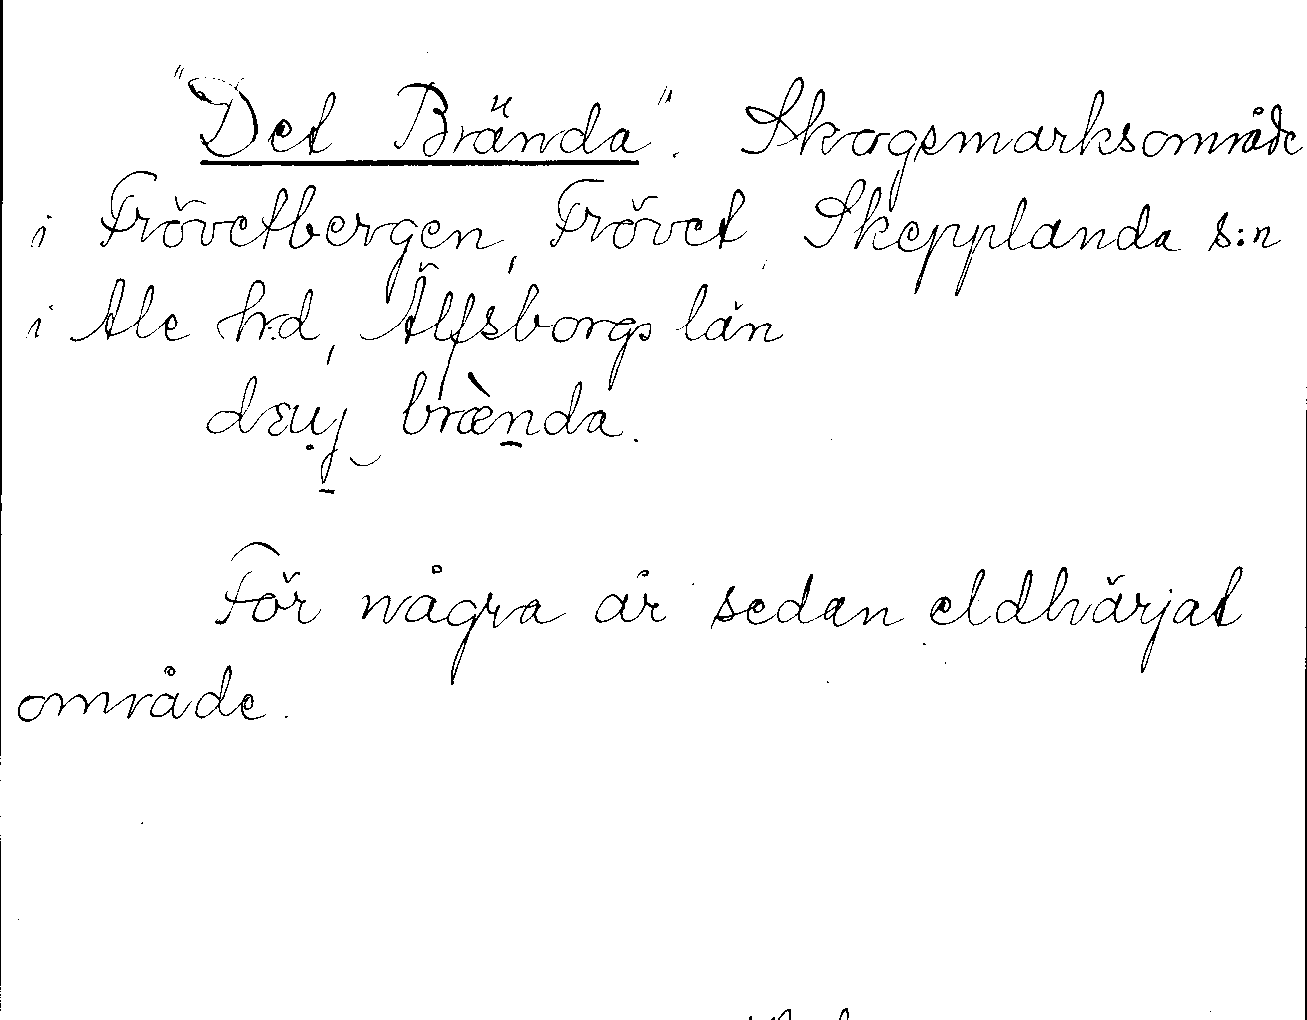 "Det Brända". Skogsmarksområde
i Frövetbergen, Frövet, Skepplanda s:n
i Ale h:d, Älfsborgs län
brènda.
För några år sedan eldhärjat
område.